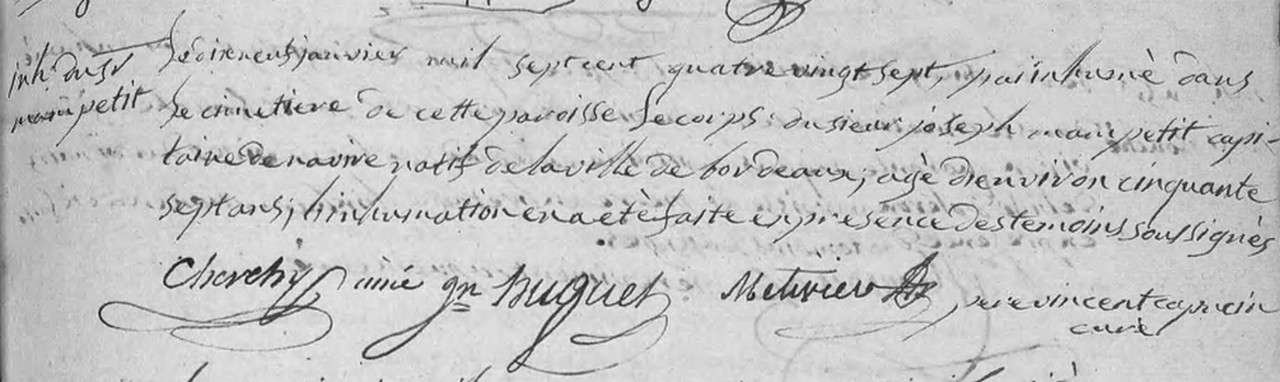 inh. du Sr
petit
Le dixneuf janvier mil sept cent quatre vingt sept, j'ai inhumè dans
Le cimetiere de cette paroisse Le corps du sieur joseph petit capi-
taine de navire natif de la ville de bordeaux, agè d'environ cinquante
sept ans; l'inhumation en a etè faite en presence des temoins soussignès
ainé gn huguet Metivier pere vincent capucin
curé